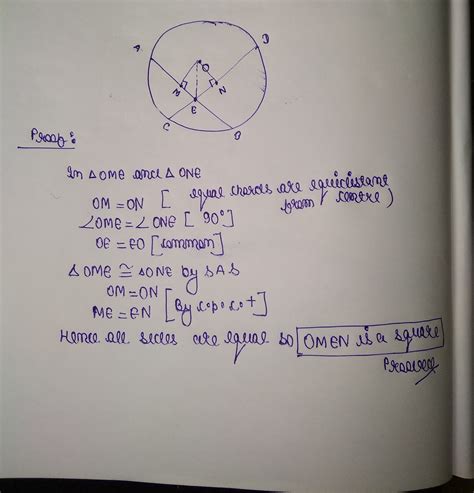 A
O
M
N
E
C
Proof:
In △OME and △ONE
OM = ON [ equal chords are equidistant
from centre)
∠OME = ∠ONE [ 90°]
OE = EO [common]
△OME ≅ △ONE by SAS
OM = ON
ME = EN [By c.p.c.t]
Hence all sides are equal so OMEN is a square
Prooved